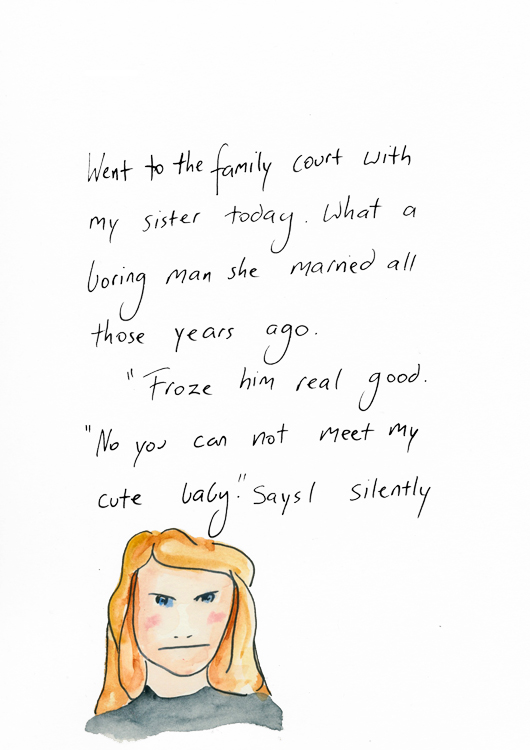 Went to the family court with
my sister today. What a
boring man she married all
those years ago.
"Froze him real good.
"No you can not meet my
cute baby." Says I silently